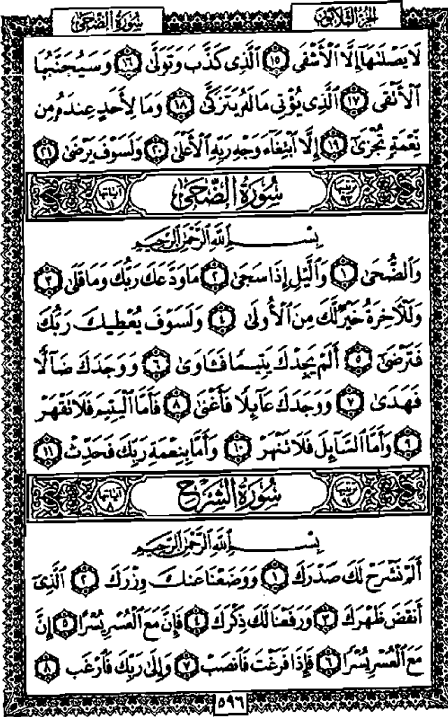 سُورَةُ الضُّحَى الجُزْءُ الثَّلَاثُونَ
لَا يَصْلَىٰهَآ إِلَّا ٱلْأَشْقَى ١٥ ٱلَّذِى كَذَّبَ وَتَوَلَّىٰ ١٦ وَسَيُجَنَّبُهَا
ٱلْأَتْقَى ١٧ ٱلَّذِى يُؤْتِى مَالَهُۥ يَتَزَكَّىٰ ١٨ وَمَا لِأَحَدٍ عِندَهُۥ مِن
نِّعْمَةٍ تُجْزَىٰٓ ١٩ إِلَّا ٱبْتِغَآءَ وَجْهِ رَبِّهِ ٱلْأَعْلَىٰ ٢٠ وَلَسَوْفَ يَرْضَىٰ ٢١
ترتيبها ٩٣ سُورَةُ الضُّحَى آياتها ١١
بِسْمِ ٱللَّهِ ٱلرَّحْمَٰنِ ٱلرَّحِيمِ
وَٱلضُّحَىٰ ١ وَٱلَّيْلِ إِذَا سَجَىٰ ٢ مَا وَدَّعَكَ رَبُّكَ وَمَا قَلَىٰ ٣
وَلَلْأَخِرَةُ خَيْرٌ لَّكَ مِنَ ٱلْأُولَىٰ ٤ وَلَسَوْفَ يُعْطِيكَ رَبُّكَ
فَتَرْضَىٰٓ ٥ أَلَمْ يَجِدْكَ يَتِيمًا فَـَٔاوَىٰ ٦ وَوَجَدَكَ ضَآلًّا
فَهَدَىٰ ٧ وَوَجَدَكَ عَآئِلًا فَأَغْنَىٰ ٨ فَأَمَّا ٱلْيَتِيمَ فَلَا تَقْهَرْ
٩ وَأَمَّا ٱلسَّآئِلَ فَلَا تَنْهَرْ ١٠ وَأَمَّا بِنِعْمَةِ رَبِّكَ فَحَدِّثْ ١١
ترتيبها ٩٤ سُورَةُ الشَّرْحِ آياتها ٨
بِسْمِ ٱللَّهِ ٱلرَّحْمَٰنِ ٱلرَّحِيمِ
أَلَمْ نَشْرَحْ لَكَ صَدْرَكَ ١ وَوَضَعْنَا عَنكَ وِزْرَكَ ٢ ٱلَّذِىٓ
أَنقَضَ ظَهْرَكَ ٣ وَرَفَعْنَا لَكَ ذِكْرَكَ ٤ فَإِنَّ مَعَ ٱلْعُسْرِ يُسْرًا ٥ إِنَّ
مَعَ ٱلْعُسْرِ يُسْرًا ٦ فَإِذَا فَرَغْتَ فَٱنصَبْ ٧ وَإِلَىٰ رَبِّكَ فَٱرْغَب ٨
٥٩٦